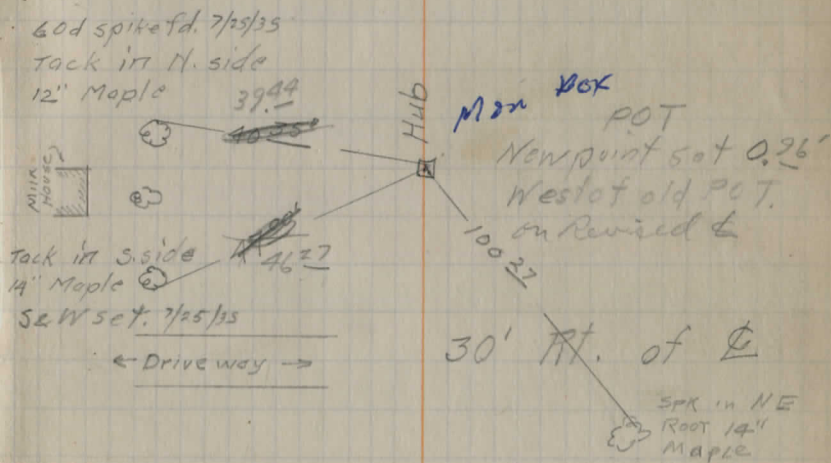 60d spike fd. 7/25/35
Tack in N. side
12" Maple
39.44
Hub
Mon box
POT
New point set 0.96'
West of old POT.
on Revised ℄
Milk
House
46 27
100 37
Tack in S. side
14" Maple
S&W set. 7/25/35
← Drive way →
30' Rt. of ℄
Spk in NE
Root 14"
Maple